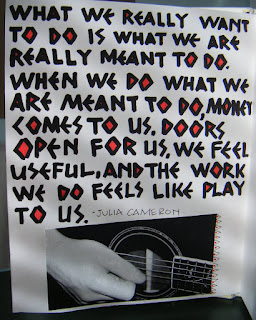 WHAT WE REALLY WANT
TO DO IS WHAT WE ARE
REALLY MEANT TO DO.
WHEN WE DO WHAT WE
ARE MEANT TO DO, MONEY
COMES TO US, DOORS
OPEN FOR US, WE FEEL
USEFUL, AND THE WORK
WE DO FEELS LIKE PLAY
TO US. -JULIA CAMERON